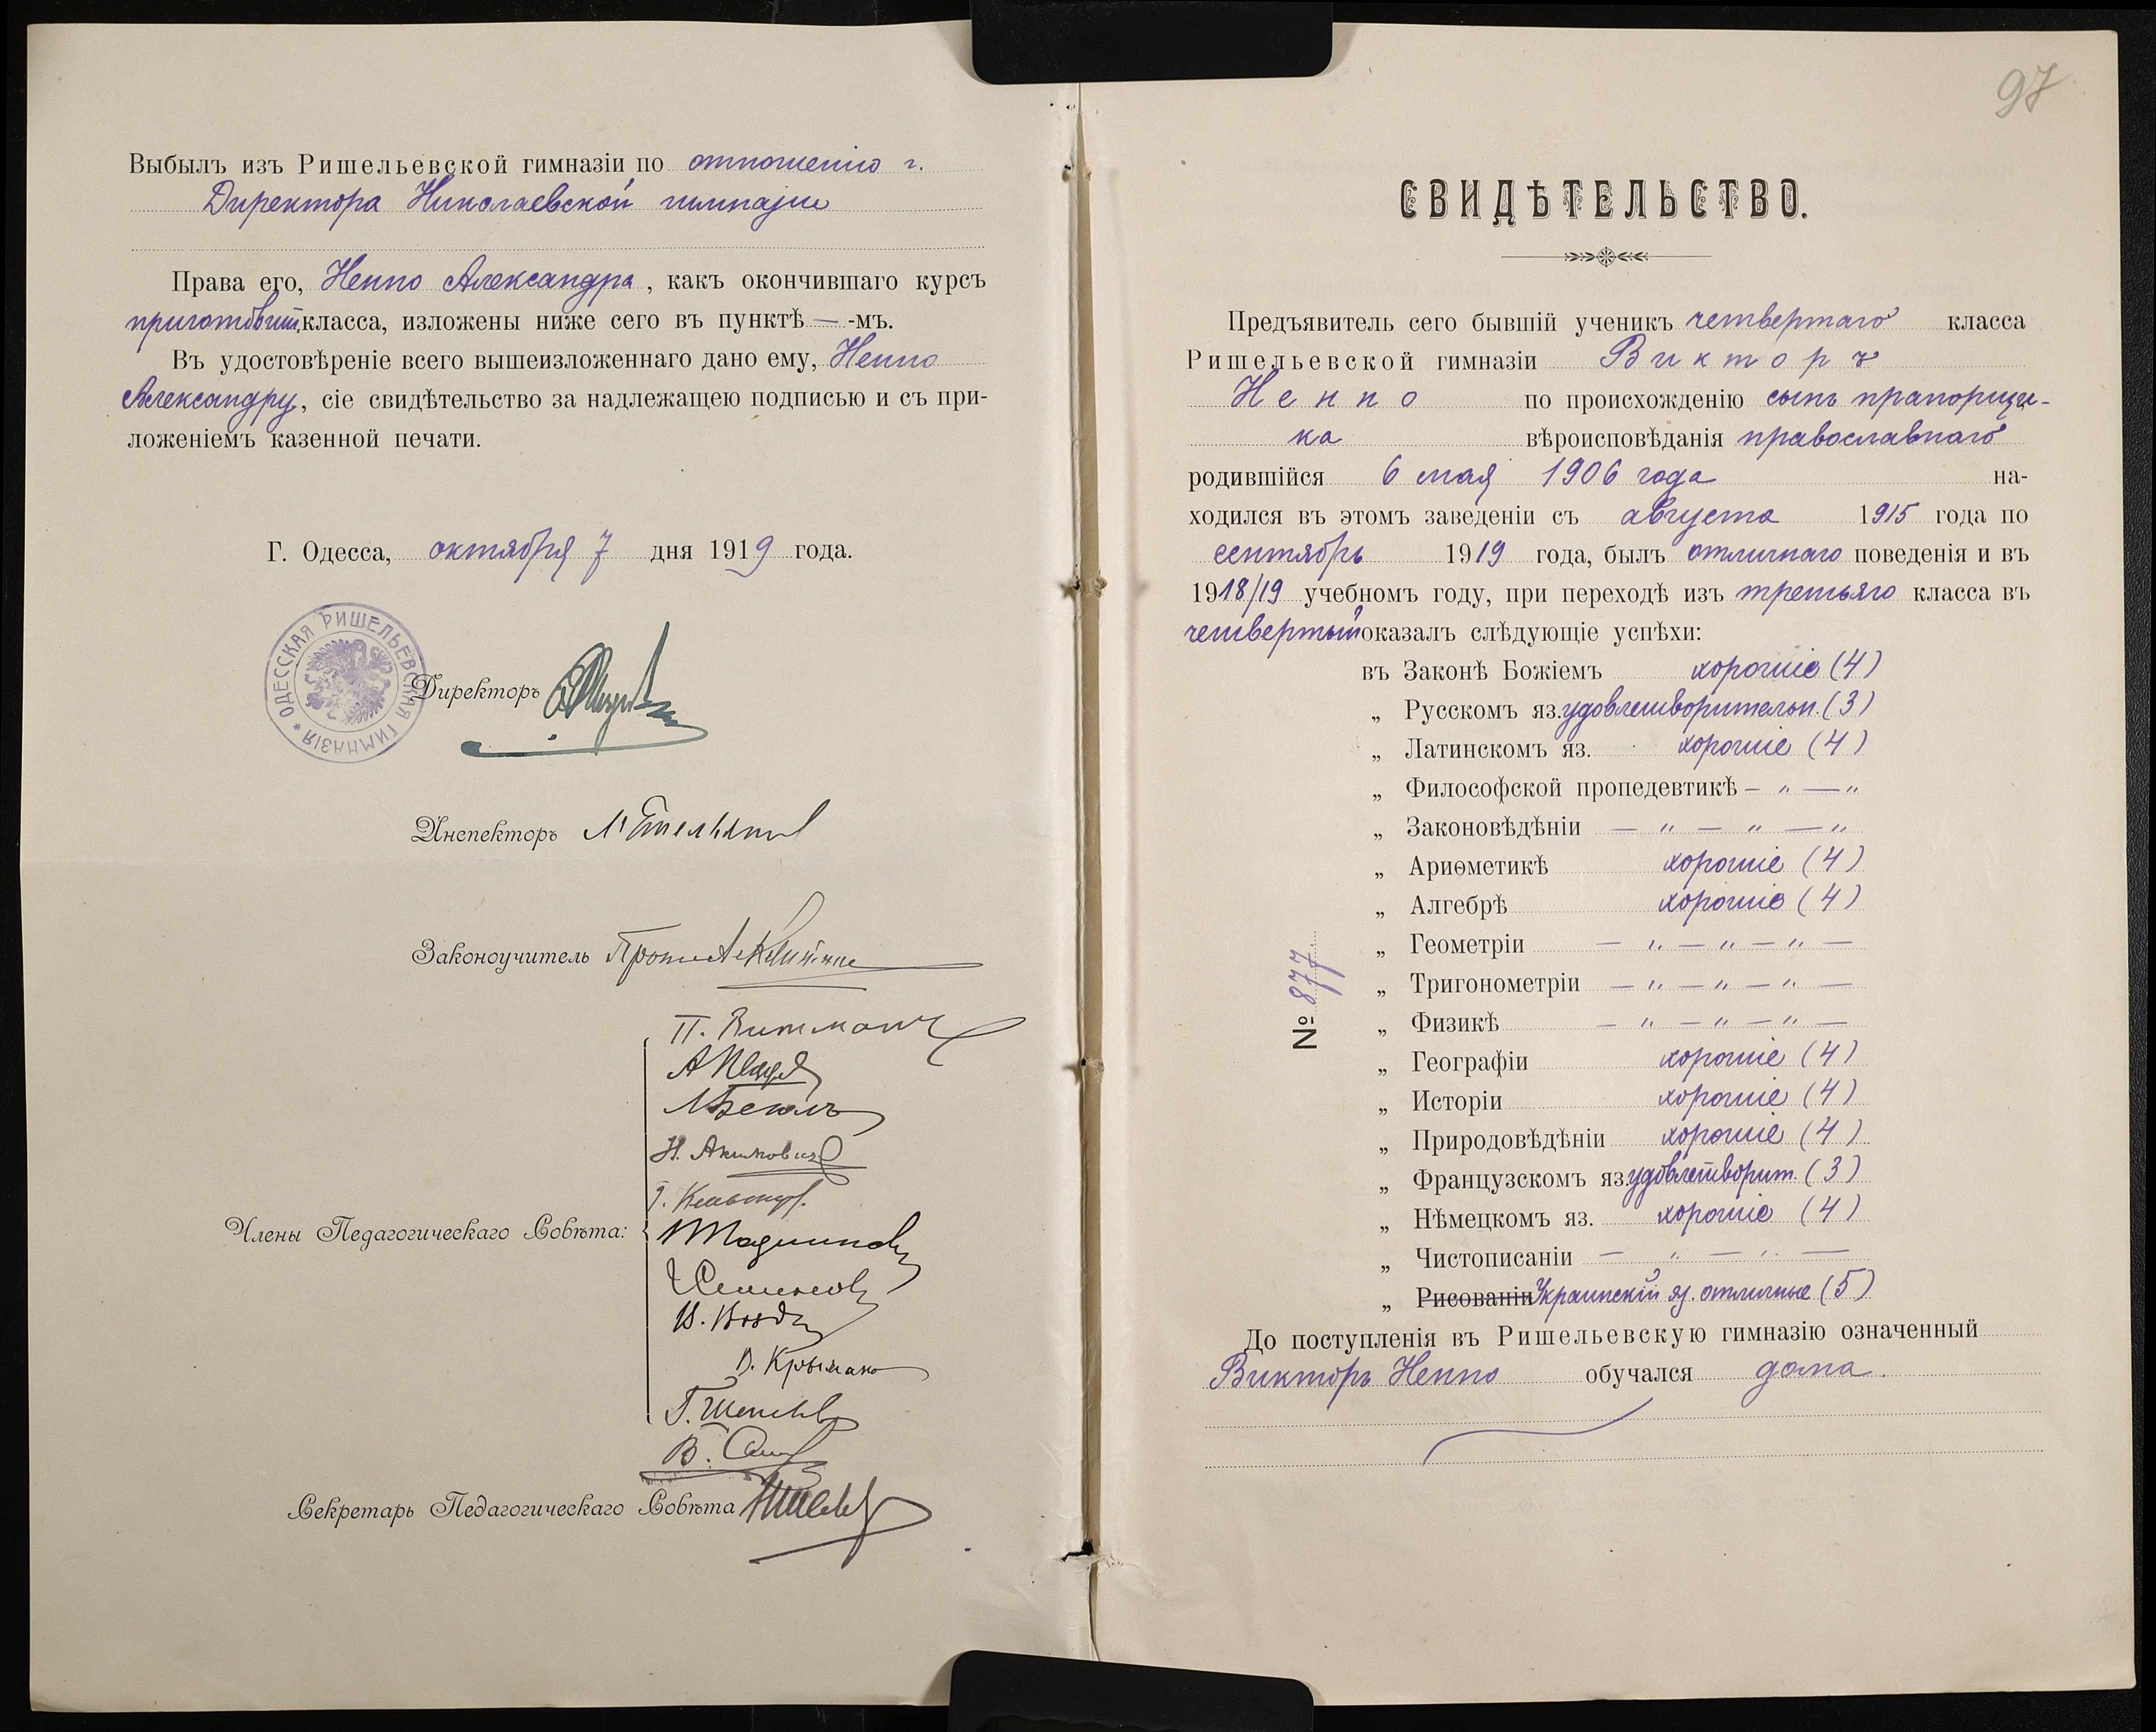 Выбылъ изъ Ришельевской гимназіи по отношенію г.
Директора Николаевской гимназіи
Права его, Ненно Александра, какъ окончившаго курсъ
приготовит. класса, изложены ниже сего въ пунктѣ — -мъ.
Въ удостовѣреніе всего вышеизложеннаго дано ему, Ненно
Александру, сіе свидѣтельство за надлежащею подписью и съ при-
ложеніемъ казенной печати.
Г. Одесса, октября 7 дня 1919 года.
ОДЕССКАЯ РИШЕЛЬЕВСКАЯ ГИМНАЗІЯ
Директоръ
Инспекторъ
Законоучитель
П. Витманъ
Н. Акимовичъ
Члены Педагогическаго Совѣта:
Секретарь Педагогическаго Совѣта
97
СВИДѢТЕЛЬСТВО.
Предъявитель сего бывшій ученикъ четвертаго класса
Ришельевской гимназіи Викторъ
Ненно по происхожденію сынъ прапорщи-
ка вѣроисповѣданія православнаго
родившійся 6 мая 1906 года на-
ходился въ этомъ заведеніи съ августа 1915 года по
сентябрь 1919 года, былъ отличнаго поведенія и въ
1918/19 учебномъ году, при переходѣ изъ третьяго класса въ
четвертый оказалъ слѣдующіе успѣхи:
въ Законѣ Божіемъ хорошіе (4)
„ Русскомъ яз. удовлетворительн. (3)
„ Латинскомъ яз. хорошіе (4)
„ Философской пропедевтикѣ — „ — „
„ Законовѣдѣніи — „ — „ — „
„ Ариѳметикѣ хорошіе (4)
„ Алгебрѣ хорошіе (4)
„ Геометріи — „ — „ — „ —
„ Тригонометріи — „ — „ — „ —
„ Физикѣ — „ — „ — „ —
„ Географіи хорошіе (4)
„ Исторіи хорошіе (4)
„ Природовѣдѣніи хорошіе (4)
„ Французскомъ яз. удовлетворит. (3)
„ Нѣмецкомъ яз. хорошіе (4)
„ Чистописаніи — „ — „ —
„ Рисованіи Украинскій яз. отличные (5)
№ 877.
До поступленія въ Ришельевскую гимназію означенный
Викторъ Ненно обучался дома.